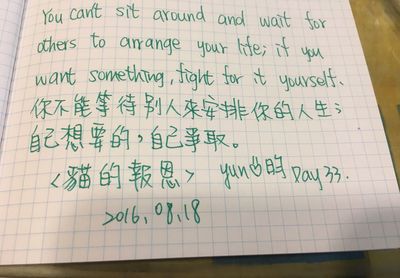 You can't sit around and wait for
others to arrange your life; if you
want something, fight for it yourself.
你不能等待別人來安排你的人生；
自己想要的，自己爭取。
<貓的報恩> yun的 Day 33.
2016.08.18